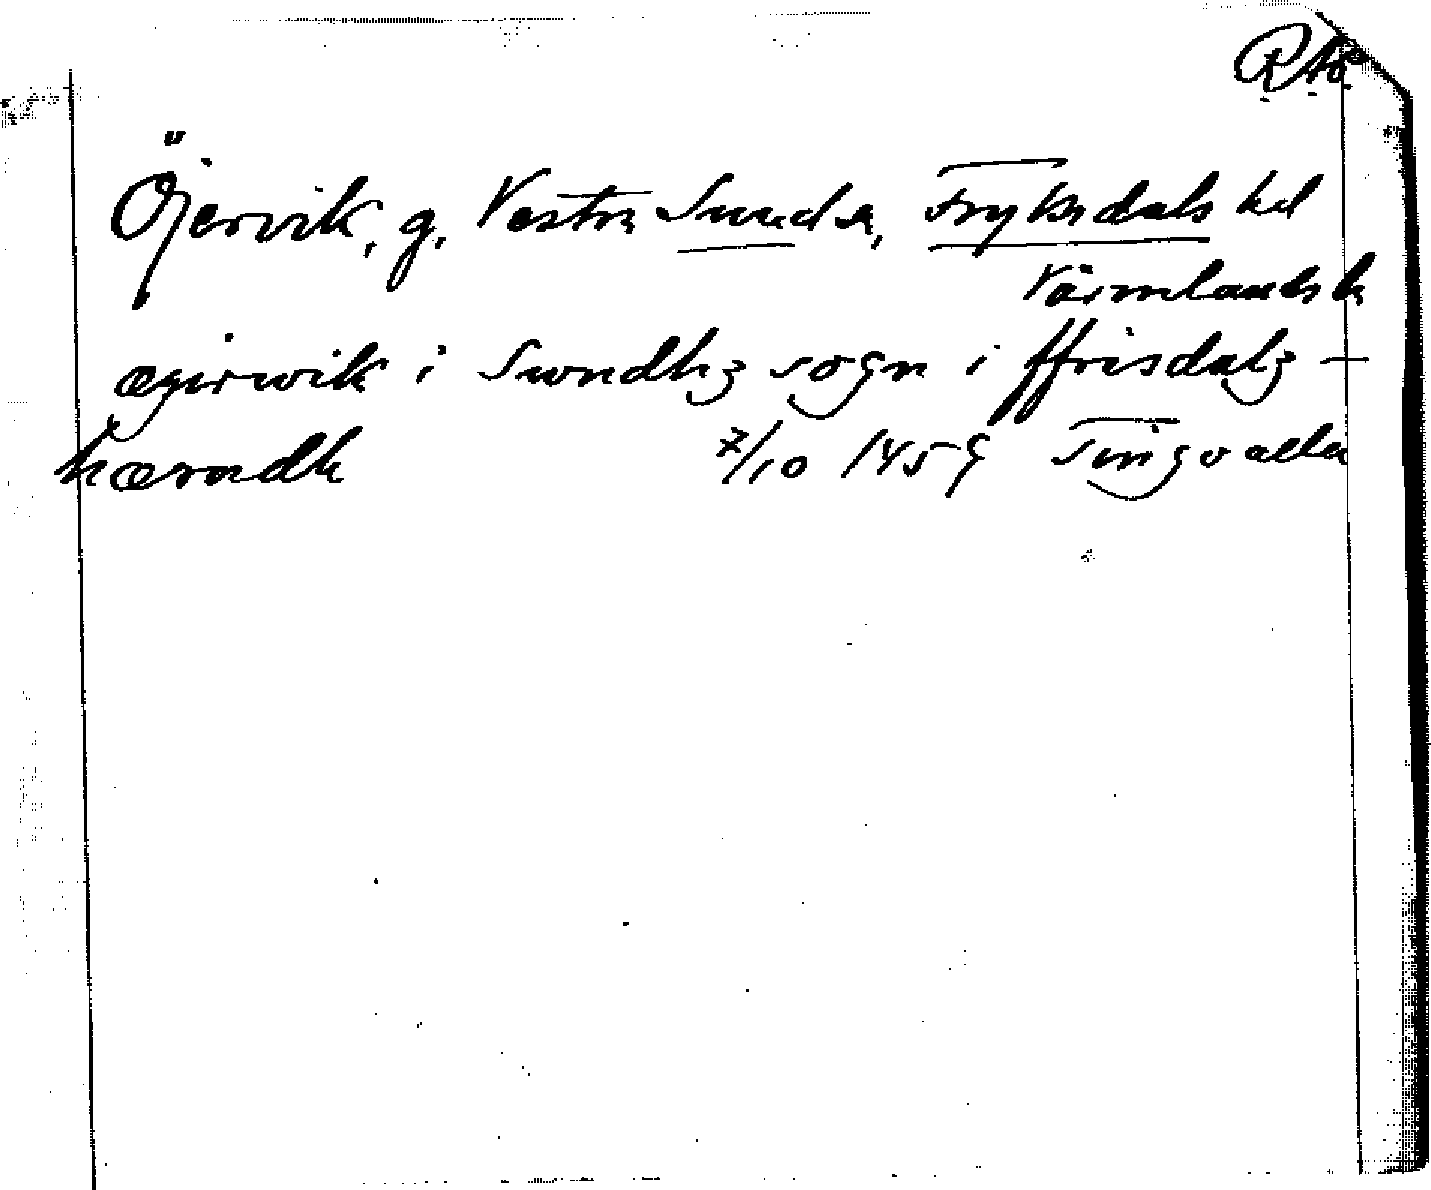 Öjervik, g. Vestra Sunda, Fryksdals hd
Värmlands l
ægirwik i Swndhz sogn i ffrisdalz -
hæradh 7/10 1459 Tingvalla